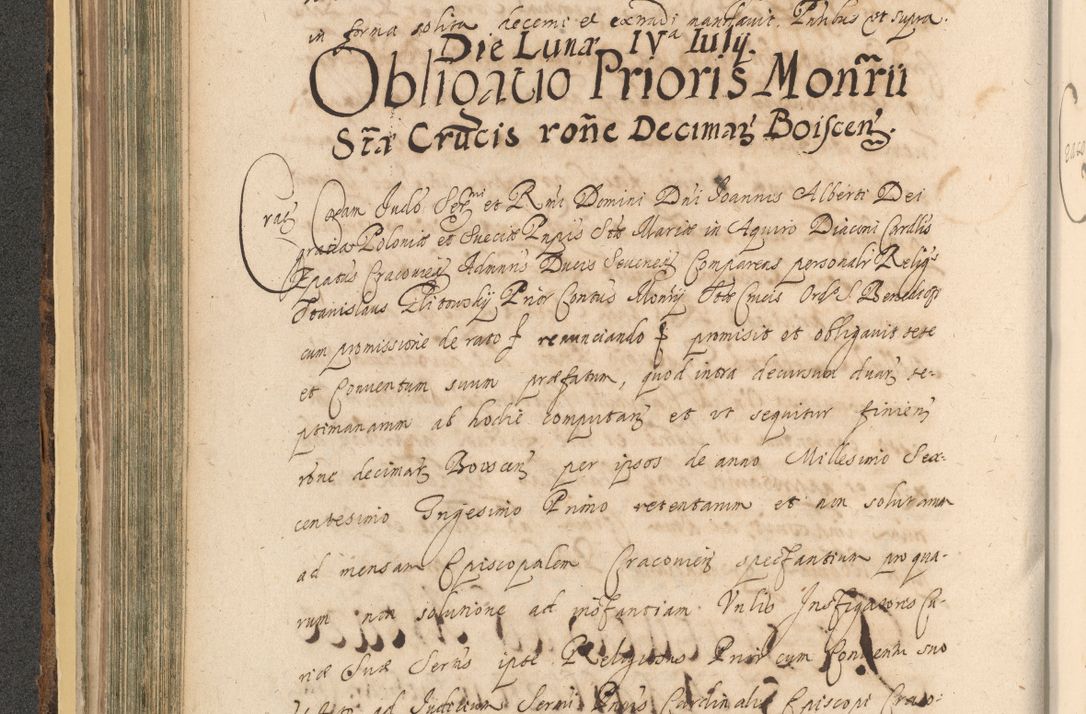 in forma solita decerni et extradi mandavit Pntibus vt supra.
Die Lunæ IVa Iulÿ.
Obligatio Prioris Monrii
Stæ Crucis rone Decimarz Boiscenz.
Cracz Coram Judo Sermi et Rmi Domini Dni Joannis Alberti Dei
gratia Poloniæ et Sueciæ Pnpis Stæ Mariæ in Aquiro Diaconi Cardlis
Epatus Cracovienz Admnris Ducis Seuerienz Comparens personalr Religs
Stanislaus Prior Contus Monrÿ Stæ Crucis Ord S Benedicti
cum promissione de rato renunciando promisit et obligavit sese
et Conventum suum præfatum, quod intra decursum duarz se-
ptimanarum ab hodie computarz et vt sequitur finienz
rone decimarz Boiscenz per ipsos de anno Millesimo Sex-
centesimo Trigesimo Primo retentarum et non solutarum
ad mensam Episcopalem Cracovienz spectantium pro qua-
rum non solutione ad instantiam Vnlis Instigatoris Cu-
riæ Suæ Sertis ipse Religiosus Prior cum Conventu suo
ad Judicium Sermi Pnpis Cardinalis Episcopi Craco-